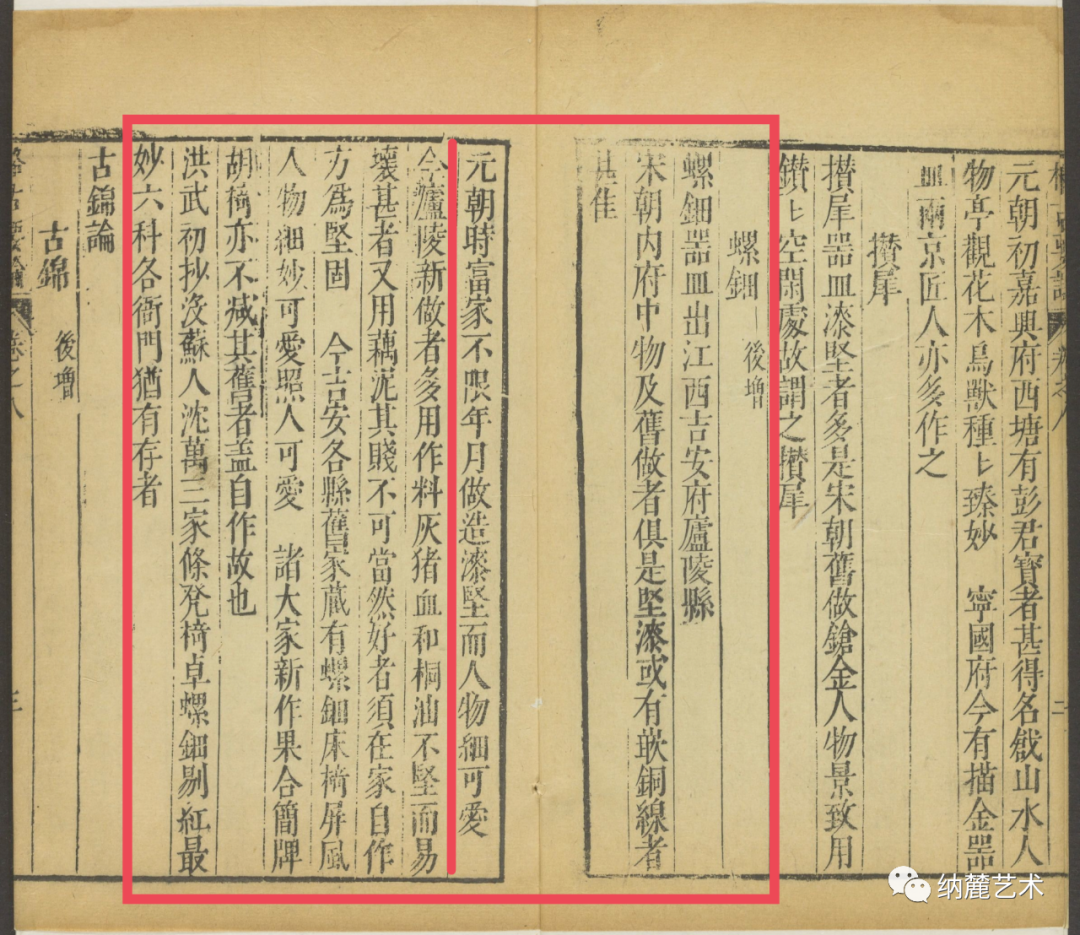 元朝初嘉興府西塘有彭君寶者甚得名戧山水人
物亭觀花木鳥獸種〻臻妙　寧國府今有描金器
皿兩京匠人亦多作之
攅犀
攅犀器皿漆堅者多是宋朝舊做鎗金人物景致用
鑚〻空閑處故謂之攅犀
螺鈿 後增
螺鈿器皿出江西吉安府廬陵縣
宋朝内府中物及舊做者俱是堅漆或有嵌銅線者
其隹
元朝時富家不限年月做造漆堅而人物細可愛
今廬陵新做者多用作料灰猪血和桐油不堅而易
壞甚者又用藕泥其賤不可當然好者須在家自作
方爲堅固　今吉安各縣舊家藏有螺鈿床椅屏風
人物細妙可愛照人可愛　諸大家新作果合簡牌
胡椅亦不减其舊者盖自作故也
洪武初抄沒蘇人沈萬三家條凳椅卓螺鈿剔紅最
妙六科各衙門猶有存者
古錦論
古錦 後增
卷之八
三
纳麓艺术